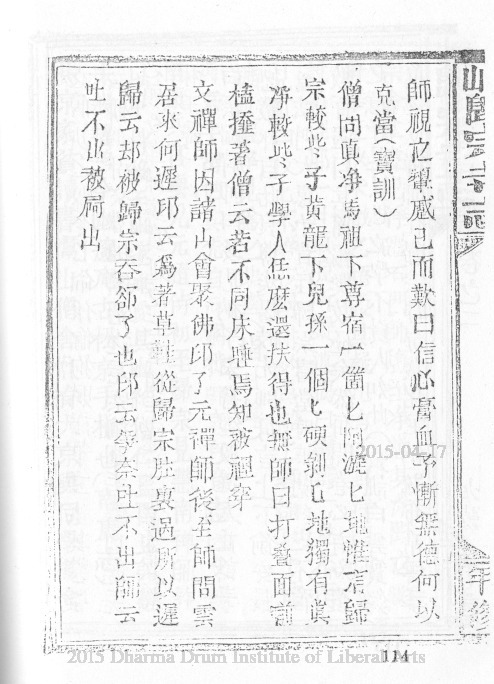 師視之顰蹙已而歎曰信心膏血予慚無德何以
克當(寶訓)
僧問真淨馬祖下尊宿一箇匕阿漉匕地惟有歸
宗較些子黃龍下兒孫一個匕硬剝匕地獨有真
淨較些子學人恁麼還扶得也無師曰打疊面前
搕𢶍著僧云若不同床睡焉知被穿
文禪師因諸山會聚佛印了元禪師後至師問雲
居來何遲印云為著草鞋從歸宗肚裏過所以遲
歸云却被歸宗吞卻了也印云爭奈吐不出師云
吐不出被屙出
114
2015-04-17
2015 Dharma Drum Institute of Liberal Arts